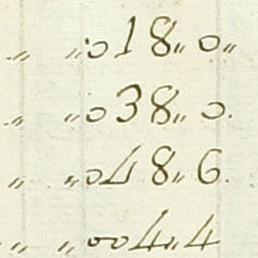 〃 〃018〃0〃
〃 〃038〃0.
〃 〃048〃6.
〃 〃004〃4